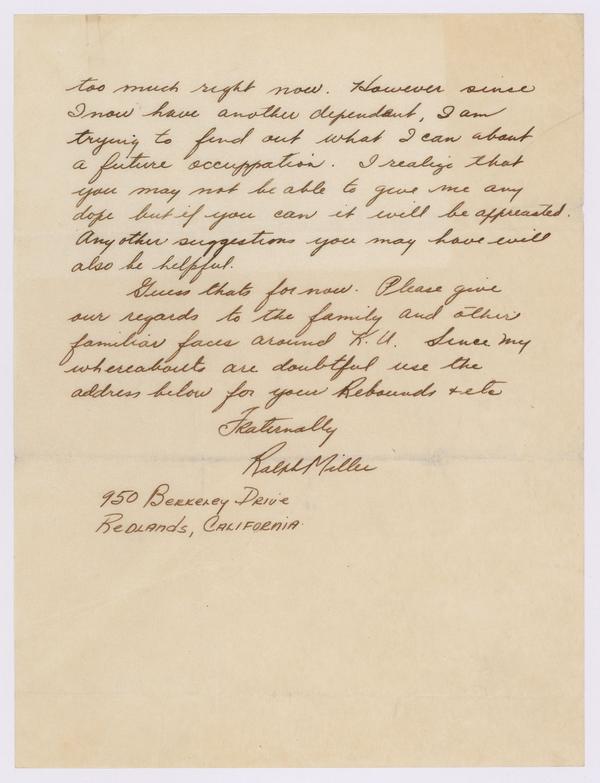 too much right now. However since
I now have another dependant, I am
trying to find out what I can about
a future occuppation. I realize that
you may not be able to give me any
dope but if you can it will be appreasted.
Any other suggestions you may have will
also be helpful.
Guess thats for now. Please give
our regards to the family and other
familiar faces around K.U. Since my
whereabouts are doubtful use the
address below for your Rebounds & etc
Fraternally
Ralph Miller
950 Berkeley Drive
Redlands, California.